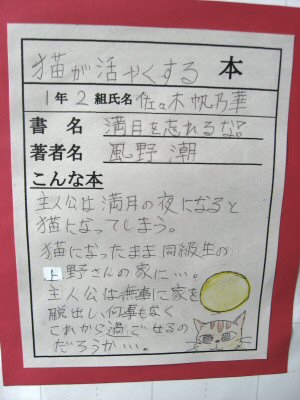 猫が活やくする 本
1年2組氏名 佐々木帆乃華
書名 満月を忘れるな!
著者名 風野潮
こんな本
主人公は満月の夜になると
猫になってしまう。
猫になったまま同級生の
上野さんの家に…。
主人公は無事に家を
脱出し、何事もなく
これから過ごせるの
だろうか…。